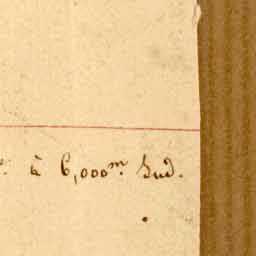 à 6,000m. Sud.